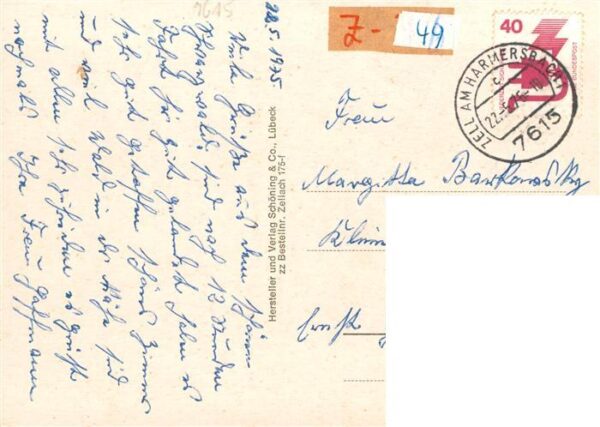 7615
22.5.1975
Viele Grüße aus dem schönen
Schwarzwald sind nach 12 Stunden
Fahrt hier gut gelandet haben es
sehr gut getroffen schönes Zimmer
und viel Wald in der Nähe sind
mit allem sehr zufrieden es grüßt
nochmals Ihre Frau Hoffmann
Hersteller und Verlag Schöning & Co., Lübeck
zz Bestellnr. Zellach 175-f
Z-
49
40
DEUTSCHE BUNDESPOST
ZELL AM HARMERSBACH 1
c
22.-5.75-10
7615
Frau
Margitta Barkowsky
Ernst